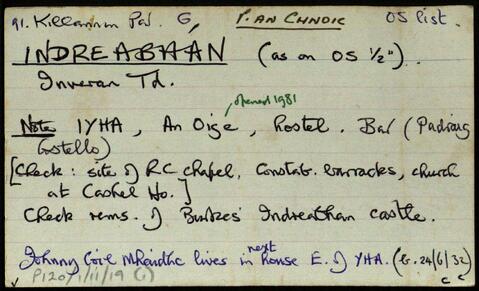 91. Killannin Par. G, P. AN CHNOIC OS list.
INDREABHÁN (as on OS ½").
Inveran Td.
opened 1981
Note IYHA, An Óige, hostel. Bar (Pádraig
Costello)
[Check: site of RC chapel, Constab. barracks, church
at Cashel Ho.]
Check rems. of Burkes' Indreabhan castle.
next
Johnny Cóil Mhaidhc lives in house E. of YHA. (b. 24/6/32)
P120/1/11/19 (1) c c